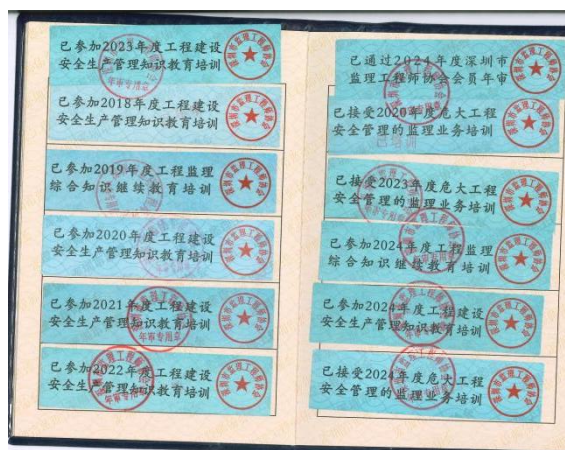 已参加2023年度工程建设
安全生产管理知识教育培训
已参加2018年度工程建设
安全生产管理知识教育培训
已参加2019年度工程监理
综合知识继续教育培训
已参加2020年度工程建设
安全生产管理知识教育培训
已参加2021年度工程建设
安全生产管理知识教育培训
年审专用章
已参加2022年度工程建设
安全生产管理知识教育培训
已通过2024年度深圳市
监理工程师协会会员年审
已接受2020年度危大工程
安全管理的监理业务培训
已培训
已接受2023年度危大工程
安全管理的监理业务培训
已参加2024年度工程监理
综合知识继续教育培训
已参加2024年度工程建设
安全生产管理知识教育培训
已接受2024年度危大工程
安全管理的监理业务培训